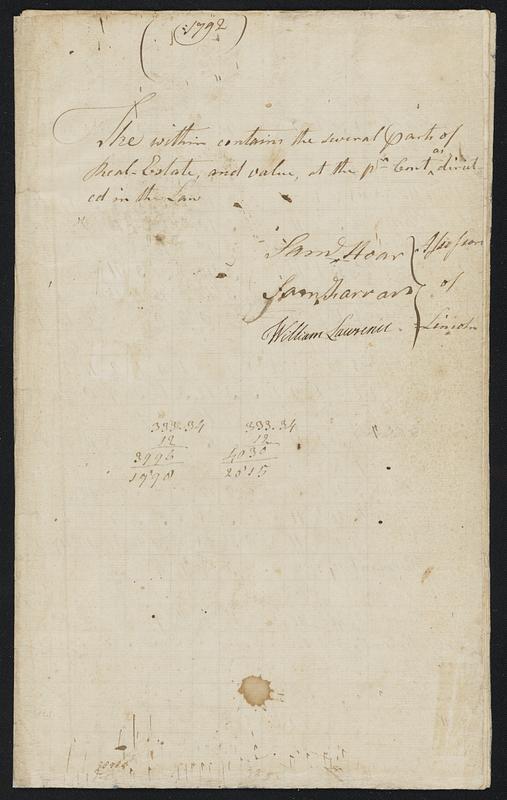 (1792)
The within contains the several parts of
Real-Estate, and value, at the pr Cent as direct-
ed in the Law
Saml Hoar } Assessors
Saml Farrar } of
William Lawrence } Lincoln
333.34 333.34
12 12
3996 4030
1998 2015